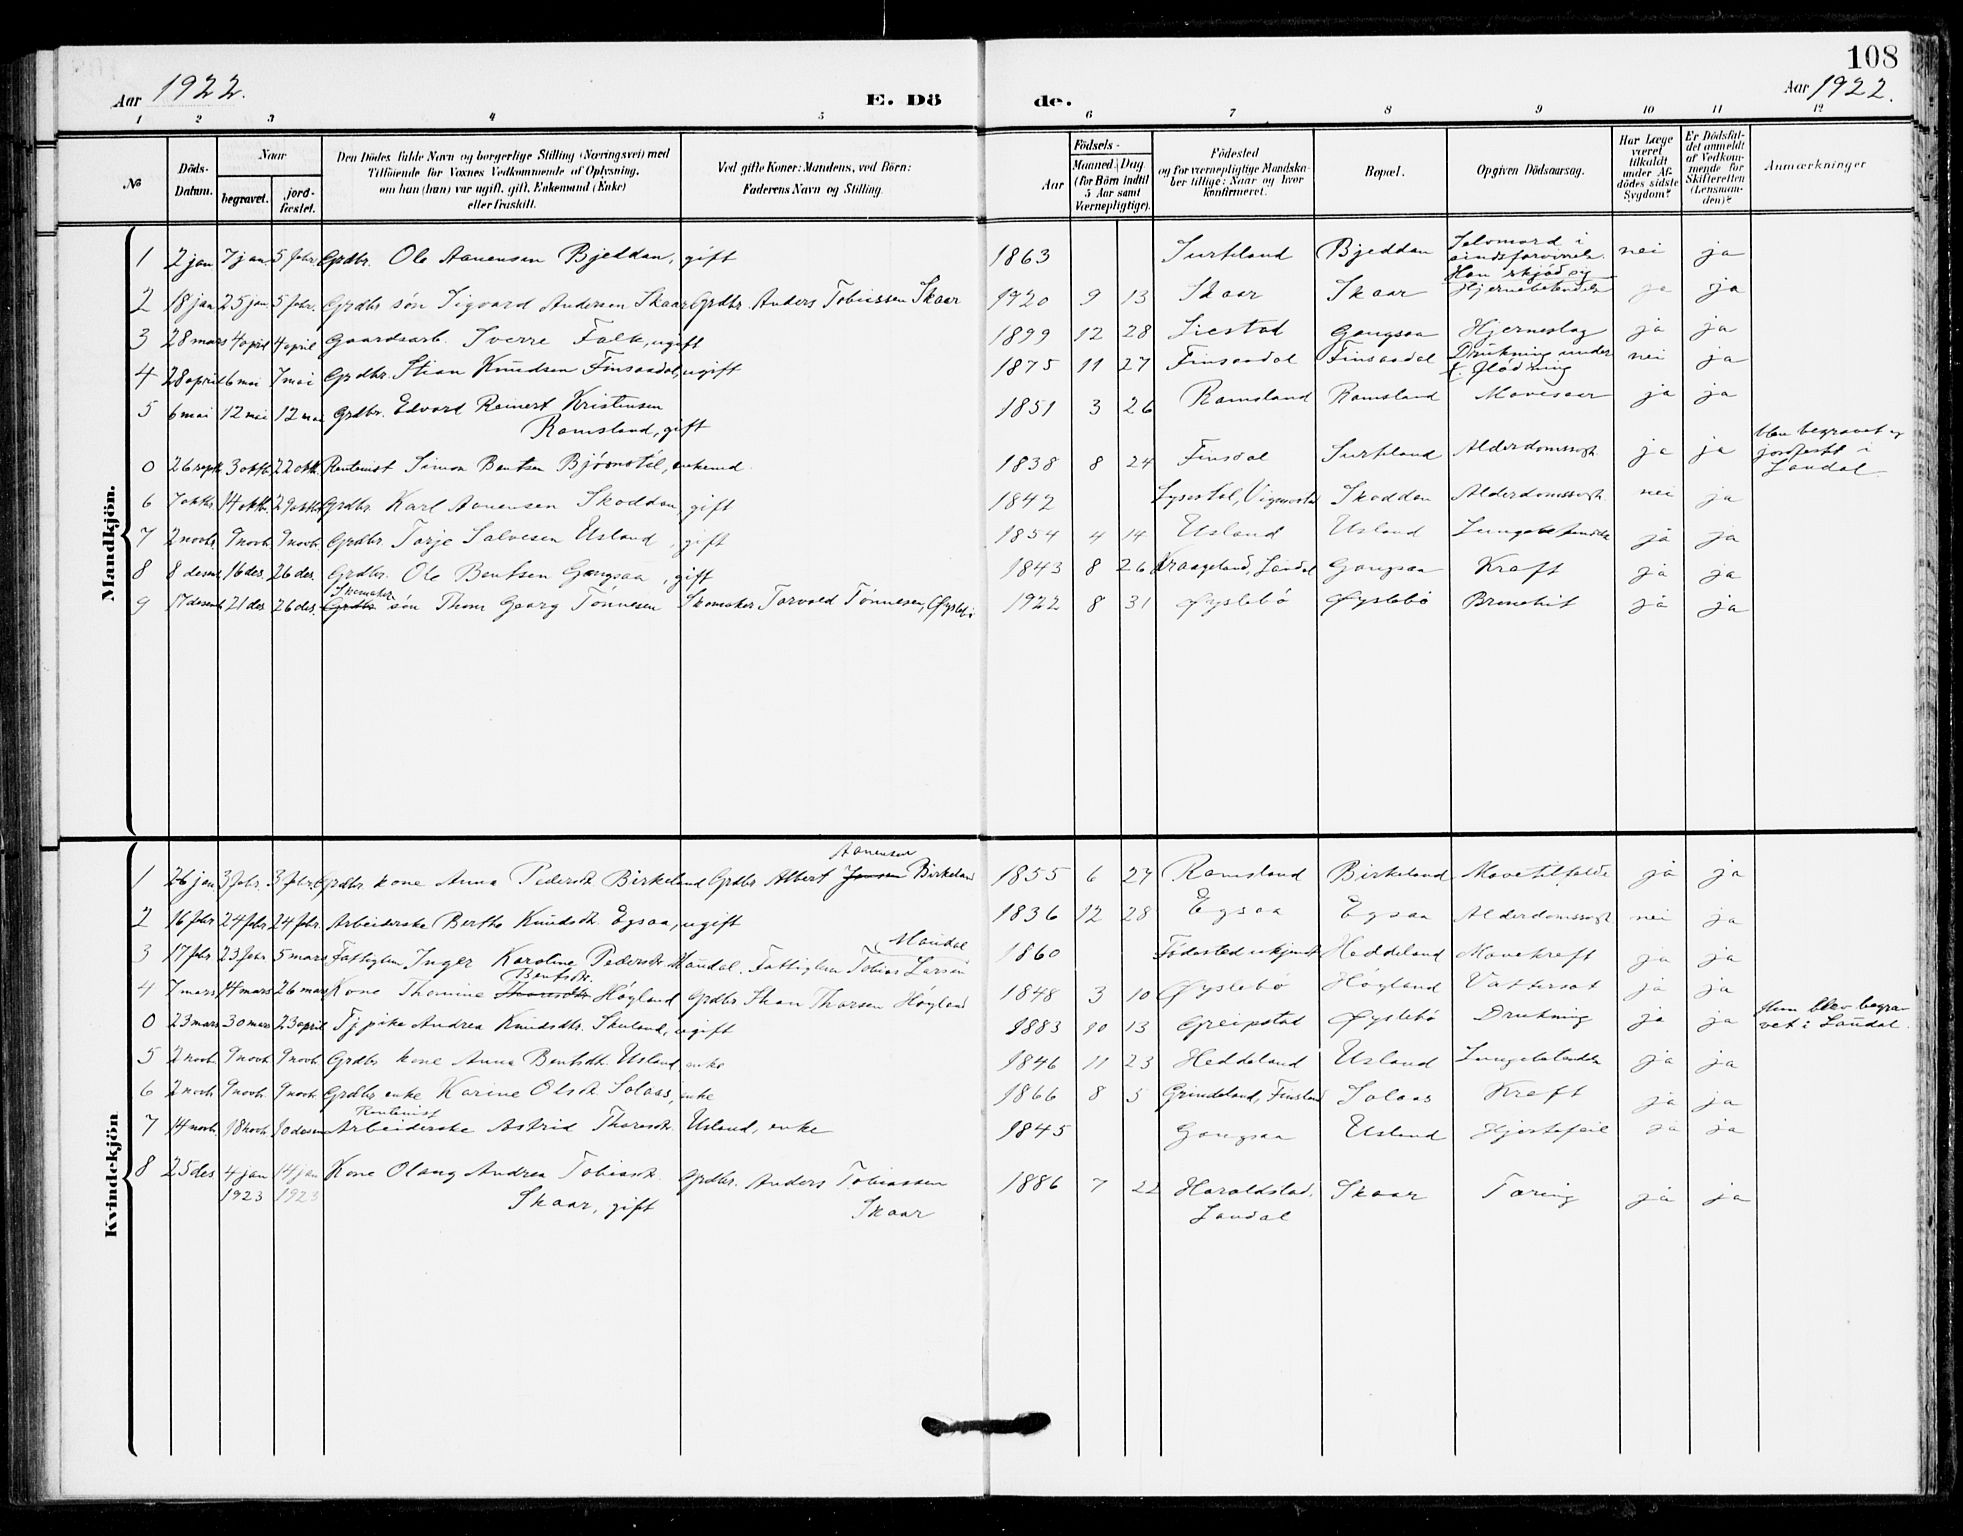 108
Aar 1922. E. Dö de. Aar 1922.
1 2 3 4 5 6 7 8 9 10 11 12
No Döds-Datum. Naar begravet. jord-fæstet. Den Dödes fulde Navn og borgerlige Stilling (Næringsvei) med Tilföiende for Voxnes Vedkommende af Oplysning, om han (hun) var ugift, gift, Enkemand (Enke) eller fraskilt. Ved gifte Koner: Mandens, ved Börn: Faderens Navn og Stilling. Födsels- Aar Maaned. Dag (for Börn indtil 5 Aar samt Værnepligtige). Födested og for værnepligtige Mandskaber tillige: Naar og hvor konfirmeret. Bopæl. Opgiven Dödsaarsag. Har Læge været tilkaldt under Afdödes sidste Sygdom? Er Dödsfaldet anmeldt af Vedkommende for Skifteretten (Lensmanden)? Anmærkninger
Mandkjön.
1 2 jan 7 jan. 5 febr. Grdbr. Ole Aanensen Bjeddan, gift 1863 Surtland Bjeddan Selvmord i sindsforvirrelse. Han skjød sig nei ja
2 18 jan 25 jan. 5 febr. Grdbr søn Sigvard Andersen Skaar Grdbr. Anders Tobiassen Skaar 1920 9 13 Skaar Skaar Hjernebetendelse ja ja
3 28 mars 4 april 4 april Gaardsarb. Sverre Falk, ugift 1899 12 28 Gangsaa Hjerneslag ja ja
4 28 april 6 mai 7 mai Grdbr. Stian Knudsen Finsaadal, ugift 1875 11 27 Finsaadal Finsaadal Drukning under flødning nei ja
5 6 mai 12 mai 12 mai Grdbr. Edvard Reinert Kristensen Ramsland, gift 1851 3 26 Ramsland Ramsland Mavesaar ja ja
0 26 septb 3 oktb. 22 oktb. Rentenist Simon Bentsen Bjørnstøl, enkemd. 1838 8 24 Finsdal Surtland Alderdomssvagh ja ja blev begravet og jordfæstet i Laudal
6 7 oktbr. 14 oktb. 29 oktbr Grdbr. Karl Aanensen Skoddan, gift 1842 Skoddan Alderdomssvagh nei ja
7 2 novbr. 9 novb. 9 novb. Grdbr. Tarje Salvesen Usland, gift 1854 4 14 Usland Usland Lungebetendelse ja ja
8 8 desemb 16 des. 26 des. Grdbr. Ole Bentsen Gangsaa, gift 1843 8 26 Kraageland, Laudal Gangsaa Kræft ja ja
9 17 desemb 21 des 26 des. Skomaker Grdbr søn Thom Georg Tønnesen Skomaker Torvald Tønnesen, Øyslebø 1922 8 31 Øyslebø Øyslebø Bronchit ja ja
Kvindekjön
1 26 jan 3 febr. 3 febr. Grdbr. kone Anna Pedersdt. Birkeland Grdbr. Albert Jensen Aanensen Birkeland 1855 6 27 Ramsland Birkeland Mavetilfælde ja ja
2 16 febr 24 febr 24 febr. Arbeiderske Berthe Knudsdt. Egsaa, ugift 1836 12 28 Egsaa Egsaa Alderdomssvagh nei ja
3 17 febr. 23 febr 5 mars Fattiglem Inger Karoline Pedersdt. Mandal. Fattiglem Tobias Larsen Mandal 1860 Fødested ukjendt Heddeland Mavekræft ja ja
4 7 mars 14 mars 26 mars Kone Thomine Thomasdt. Bentsdt. Høyland Grdbr Stian Thorsen Høyland 1848 3 10 Øyslebø Høyland Vattersot ja ja
0 23 mars 30 mars 23 april Tj. pike Andrea Knudsdtr. Skuland, ugift 1883 10 13 Greipstad Øyslebø Drukning ja ja Hun blev begravet i Laudal.
5 2 novb. 9 novb. 9 novb. Grdbr kone Anna Bentsdt. Usland enke 1846 11 23 Heddeland Usland Lungebetendelse ja ja
6 2 novb. 9 novb. 9 novb. Grdbr enke Karine Olsdt. Solaas, enke 1866 8 5 Grindeland, Finsland Solaas Kræft ja ja
7 14 novb. 18 novb. 10 desem Rentenist Arbeiderske Astrid Thoresdt. Usland, enke 1845 Gangsaa Usland Hjertefeil ja ja
8 25 des 4 jan 1923 14 jan 1923 Kone Olang Andrea Tobiasdt. Skaar, gift Grdbr. Anders Tobiassen Skaar 1886 7 22 Haraldstad, Laudal Skaar Tæring ja ja